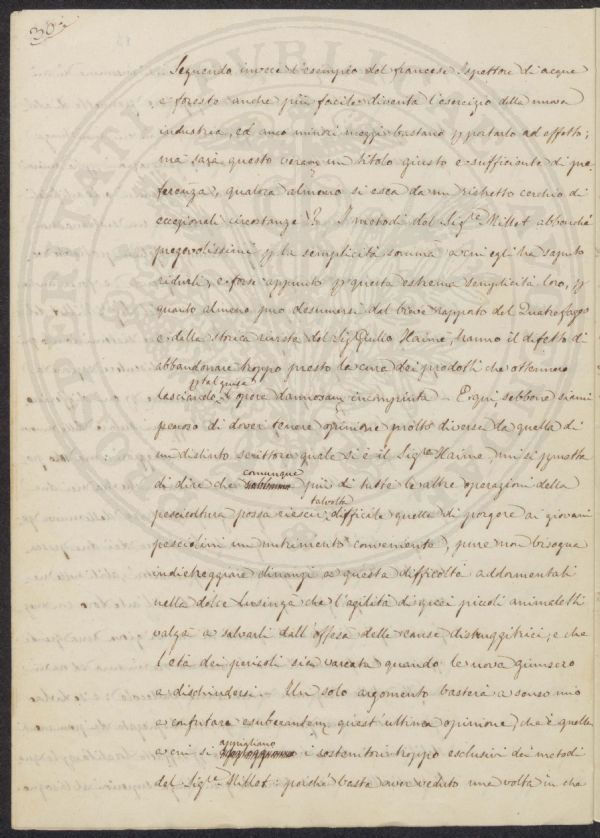 30
Seguendo invece l'esempio del francese Ispettore di acque
e foreste anche più facile diventa l'esercizio della nuova
industria, ed anco minori mezzi bastano p portarlo ad effetto;
ma sarà questo veram un titolo giusto e sufficiente di pre
ferenza, qualora almeno si esca da un ristretto cerchio di
eccezionali circostanze? I metodi del Sig.e Millet abbenché
pregevolissimi p la semplicità somma a cui egli ha saputo
ridurli, e forse appunto p questa estrema semplicità loro, p
quanto almeno può desumersi dal breve rapporto del Quatrefages
e dalla storica rivista del Sig Giulio Haime, hanno il difetto di
abbandonare troppo presto la cura dei prodotti che ottennero
p tal guisa
lasciando l'opera dannosam incompiuta. E qui, sebbene siami
penoso di dover tenere opinione molto diversa da quella di
un distinto scrittore quale si è il Sig.re Haime, mi si pmetta
comunque
di dire che più di tutte le altre operazioni della
talvolta
pescicoltura possa riescir difficile quella di porgere ai giovani
pesciolini un nutrimento conveniente, pure non bisogna
indietreggiare dinanzi a questa difficoltà addormentati
nella dolce lusinga che l'agilità di quei piccoli animaletti
valga a salvarli dall'offesa delle cause distruggitrici, e che
l'età dei pericoli sia varcata quando le uova giunsero
a dischiudersi. Un solo argomento basterà a senso mio
a confutare esuberantem quest'ultima opinione, che è quella
appigliano
a cui si i sostenitori troppo esclusivi dei metodi
del Sig.e Millet: poiché basta aver veduto una volta in che